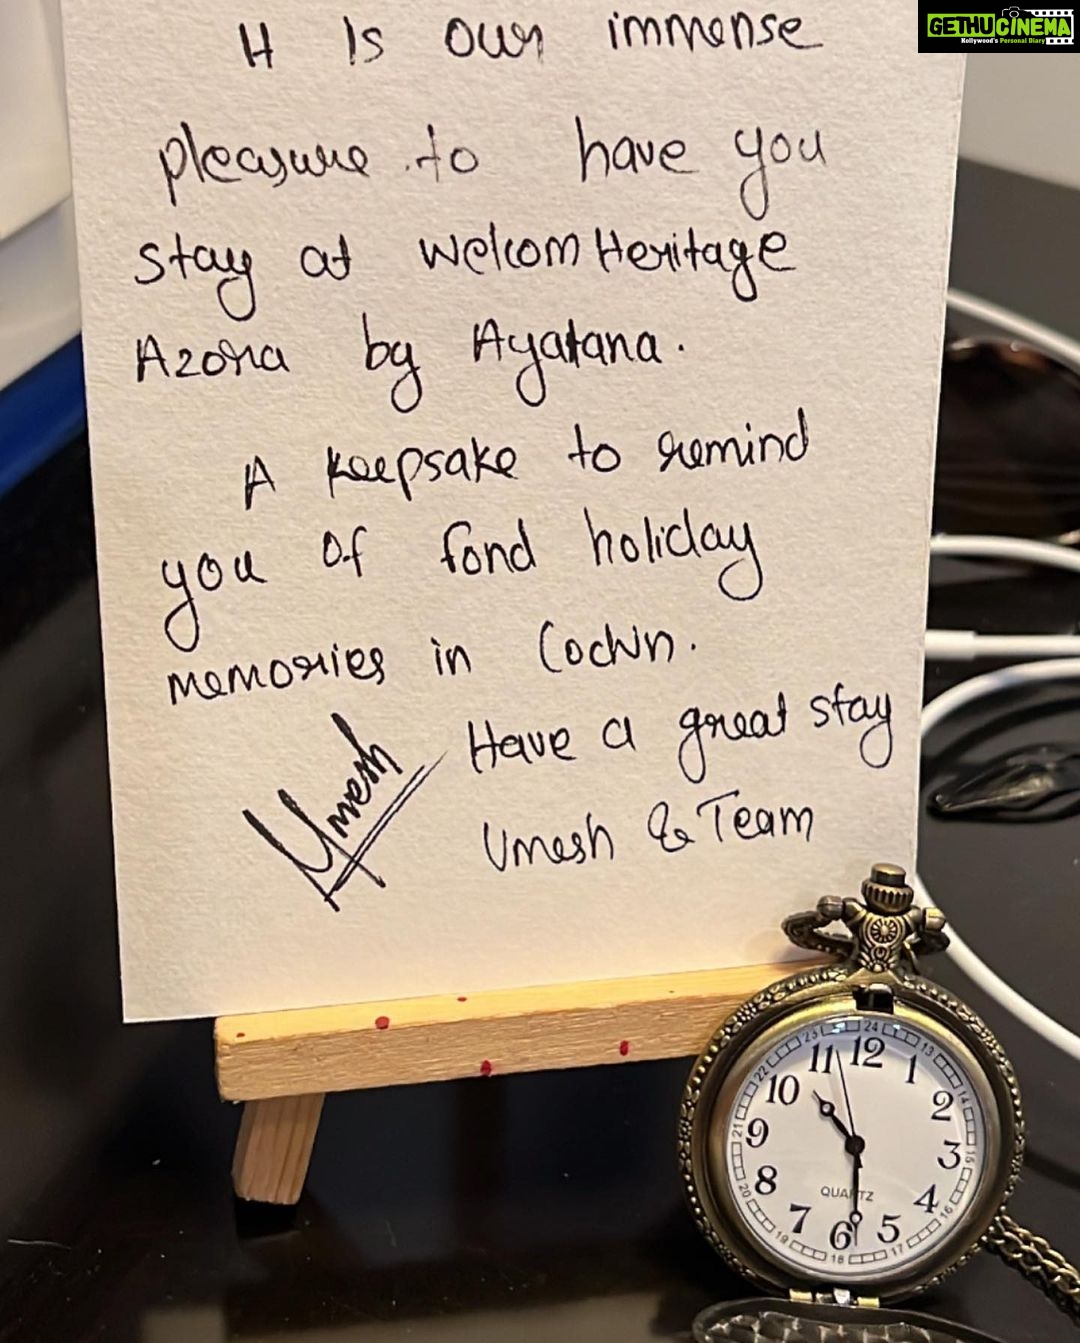 GETHUCINEMA
Kollywood's Personal Diary
It Is our immense
pleasure to have you
stay at Welcom Heritage
Azora by Ayatana.
A keepsake to remind
you of fond holiday
memories in Cochin.
Have a great stay
Umesh
Umesh & Team
11 12 1
10 2
9 3
8 4
7 6 5
QUARTZ
23 24 13
22 14
21 15
20 16
19 18 17